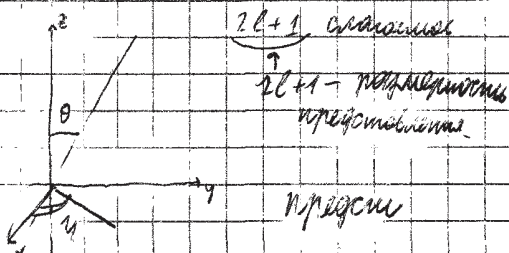 z
2l+1 слагаемое
↑
θ
2l+1 – размерность
представления.
y
предст
φ
x